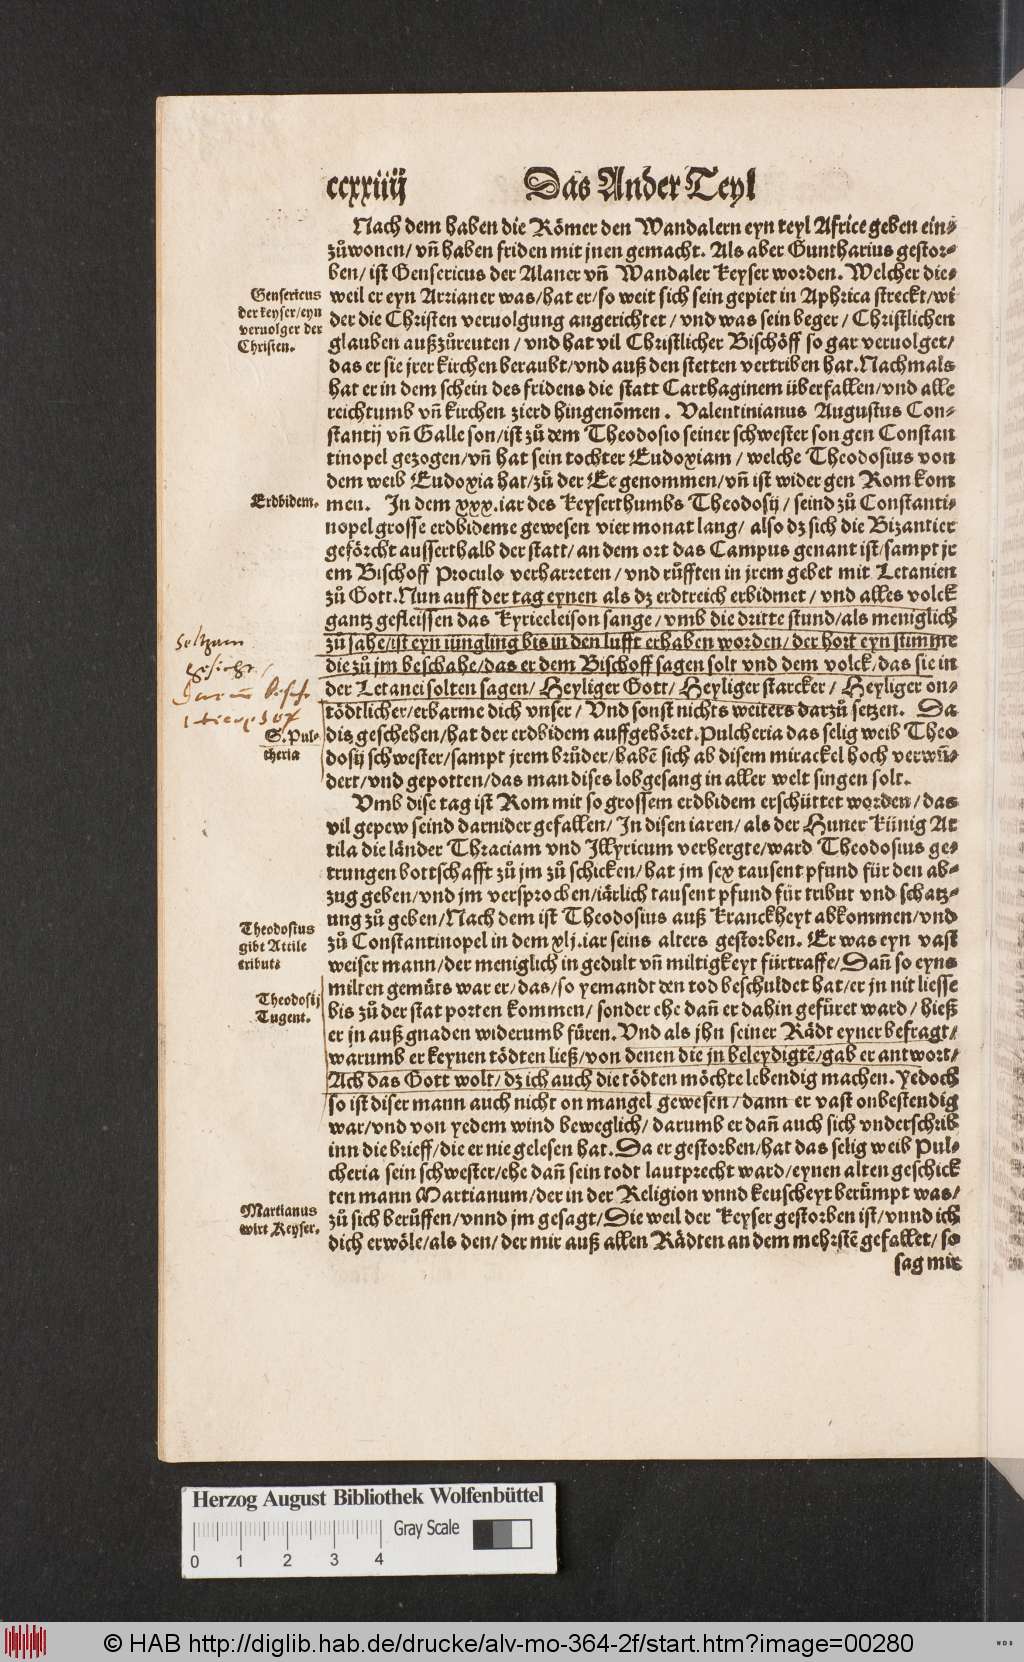 ccxxiiij
Das Ander Teyl
Nach dem haben die Römer den Wandalern eyn teyl Africe geben ein⸗
zůwonen/ vñ haben friden mit jnen gemacht. Als aber Guntharius gestor⸗
ben/ ist Gensericus der Alaner vñ Wandaler Keyser worden. Welcher die⸗
weil er eyn Arrianer was/hat er/so weit sich sein gepiet in Aphrica streckt/wi
der die Christen veruolgung angerichtet/ vnd was sein beger/ Christlichen
glauben außzůreuten/ vnd hat vil Christlicher Bischöff so gar veruolget/
das er sie jrer kirchen beraubt/vnd auß den stetten vertriben hat. Nachmals
hat er in dem schein des fridens die statt Carthaginem überfallen/vnd alle
reichtumb vñ kirchen zierd hingenõmen. Valentinianus Augustus Con⸗
stantij vñ Galle son/ist zů dem Theodosio seiner schwester son gen Constan
tinopel gezogen/vñ hat sein tochter Eudoxiam/ welche Theodosius von
dem weib Eudoxia hat/zů der Ee genommen/vñ ist wider gen Rom kom
men. In dem xxx.iar des Keyserthumbs Theodosij/ seind zů Constanti⸗
nopel grosse erdbideme gewesen vier monat lang/ also dz sich die Bizantier
geförcht ausserthalb der statt/ an dem ort das Campus genant ist/sampt jr
em Bischoff Proculo verharreten/ vnd růfften in jrem gebet mit Letanien
zů Gott. Nun auff der tag eynen als dz erdtreich erbidmet/ vnd alles volck
gantz gefleissen das Kyrieeleison sange/ vmb die dritte stund/als meniglich
zů sahe/ist eyn iüngling bis in den lufft erhaben worden/ der hort eyn stimme
die zů jm beschahe/das er dem Bischoff sagen solt vnd dem volck/das sie in
der Letanei solten sagen/ Heyliger Gott/ Heyliger starcker/ Heyliger on⸗
tödtlicher/erbarme dich vnser/ Vnd sonst nichts weiters darzů setzen. Da
dis geschehen/hat der erdbidem auffgehöret. Pulcheria das selig weib Theo
dosij schwester/sampt jrem brüder/habẽ sich ab disem mirackel hoch verwũ⸗
dert/vnd gepotten/das man dises lobgesang in aller welt singen solt.
Vmb dise tag ist Rom mit so grossem erdbidem erschüttet worden/das
vil gepew seind darnider gefallen/ In disen iaren/ als der Huner Künig At
tila die länder Thraciam vnd Illyricum verhergte/ward Theodosius ge⸗
trungen bottschafft zů jm zů schicken/hat jm sex tausent pfund für den ab⸗
zug geben/vnd jm versprochen/iärlich tausent pfund für tribut vnd schatz⸗
ung zů geben/Nach dem ist Theodosius auß Kranckheyt abkommen/vnd
zů Constantinopel in dem xlj.iar seins alters gestorben. Er was eyn vast
weiser mann/der meniglich in gedult vñ miltigkeyt fürtraffe/Dañ so eyns
milten gemüts war er/das/so yemandt den tod beschuldet hat/er jn nit liesse
bis zů der stat porten kommen/ sonder ehe dañ er dahin gefüret ward/ hieß
er jn auß gnaden widerumb füren. Vnd als jhn seiner Rädt eyner befragt/
warumb er keynen tödten ließ/von denen die jn beleydigtẽ/gab er antwort/
Ach das Gott wolt/dz ich auch die tödten möchte lebendig machen. Yedoch
so ist diser mann auch nicht on mangel gewesen/dann er vast onbestendig
war/vnd von yedem wind beweglich/ darumb er dañ auch sich vnderschrib
inn die brieff/die er nie gelesen hat. Da er gestorben/hat das selig weib Pul⸗
cheria sein schwester/ehe dañ sein todt lautprecht ward/eynen alten geschick
ten mann Martianum/der in der Religion vnnd keuscheyt berümpt was/
zů sich berůffen/vnnd jm gesagt/Die weil der Keyser gestorben ist/vnnd ich
dich erwöle/als den/der mir auß allen Rädten an dem mehrstẽ gefallet/so
sag mir
Gensericus
der keyser/eyn
veruolger der
Christen.
Erdbidem.
Seltzam
gesicht/
S. Pul⸗
cheria
Theodosius
gibt Attile
tribut:
Theodosij
Tugent.
Martianus
wirt Keyser.
Herzog August Bibliothek Wolfenbüttel
Gray Scale
0 1 2 3 4
© HAB http://diglib.hab.de/drucke/alv-mo-364-2f/start.htm?image=00280